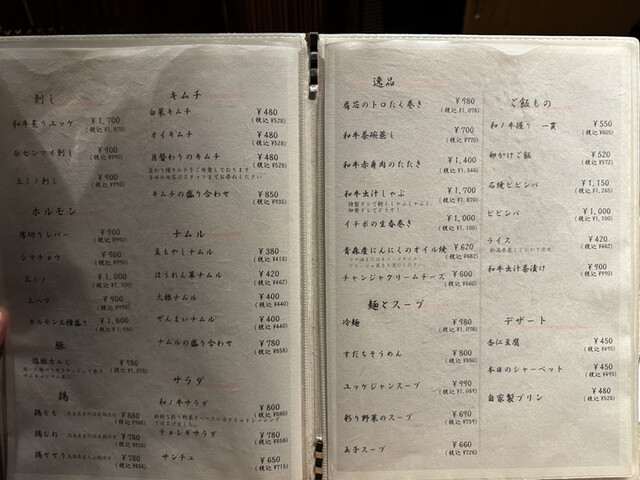 刺し
和牛炙りユッケ ¥1,700
(税込 ¥1,870)
白センマイ刺し ¥900
(税込 ¥990)
上ミノ刺し ¥900
(税込 ¥990)
ホルモン
厚切りレバー ¥900
(税込 ¥990)
シマチョウ ¥900
(税込 ¥990)
上ミノ ¥1,000
(税込 ¥1,100)
上ハツ ¥900
(税込 ¥990)
ホルモン三種盛り ¥1,800
豚
塩豚カルビ ¥980
(税込 ¥1,078)
鶏
鶏もも ¥880
(税込 ¥968)
鶏むね ¥780
(税込 ¥858)
鶏せせり ¥780
(税込 ¥858)
キムチ
白菜キムチ ¥480
(税込 ¥528)
オイキムチ ¥480
(税込 ¥528)
月替わりのキムチ ¥480
(税込 ¥528)
キムチの盛り合わせ ¥850
(税込 ¥935)
ナムル
豆もやしナムル ¥380
(税込 ¥418)
ほうれん草ナムル ¥420
(税込 ¥462)
大根ナムル ¥400
(税込 ¥440)
ぜんまいナムル ¥400
(税込 ¥440)
ナムルの盛り合わせ ¥780
(税込 ¥858)
サラダ
和ノ牛サラダ ¥800
(税込 ¥880)
チョレギサラダ ¥780
(税込 ¥858)
サンチュ ¥650
(税込 ¥715)
逸品
のトロたく巻き ¥980
(税込 ¥1,078)
和牛茶碗蒸し ¥700
(税込 ¥770)
和牛赤身肉のたたき ¥1,400
(税込 ¥1,540)
和牛出汁しゃぶ ¥1,700
(税込 ¥1,870)
イチボの生春巻き ¥1,000
(税込 ¥1,100)
青森産にんにくのオイル焼 ¥620
(税込 ¥682)
チャンジャクリームチーズ ¥600
(税込 ¥660)
麺とスープ
冷麺 ¥980
(税込 ¥1,078)
すだちそうめん ¥800
(税込 ¥880)
ユッケジャンスープ ¥990
(税込 ¥1,089)
彩り野菜のスープ ¥690
(税込 ¥759)
玉子スープ ¥660
(税込 ¥726)
ご飯もの
和ノ牛握り 一貫 ¥550
(税込 ¥605)
卵かけご飯 ¥520
(税込 ¥572)
石焼ビビンバ ¥1,150
(税込 ¥1,265)
ビビンバ ¥1,000
(税込 ¥1,100)
ライス ¥420
(税込 ¥462)
和牛出汁茶漬け ¥900
(税込 ¥990)
デザート
杏仁豆腐 ¥450
(税込 ¥495)
本日のシャーベット ¥450
(税込 ¥495)
自家製プリン ¥480
(税込 ¥528)